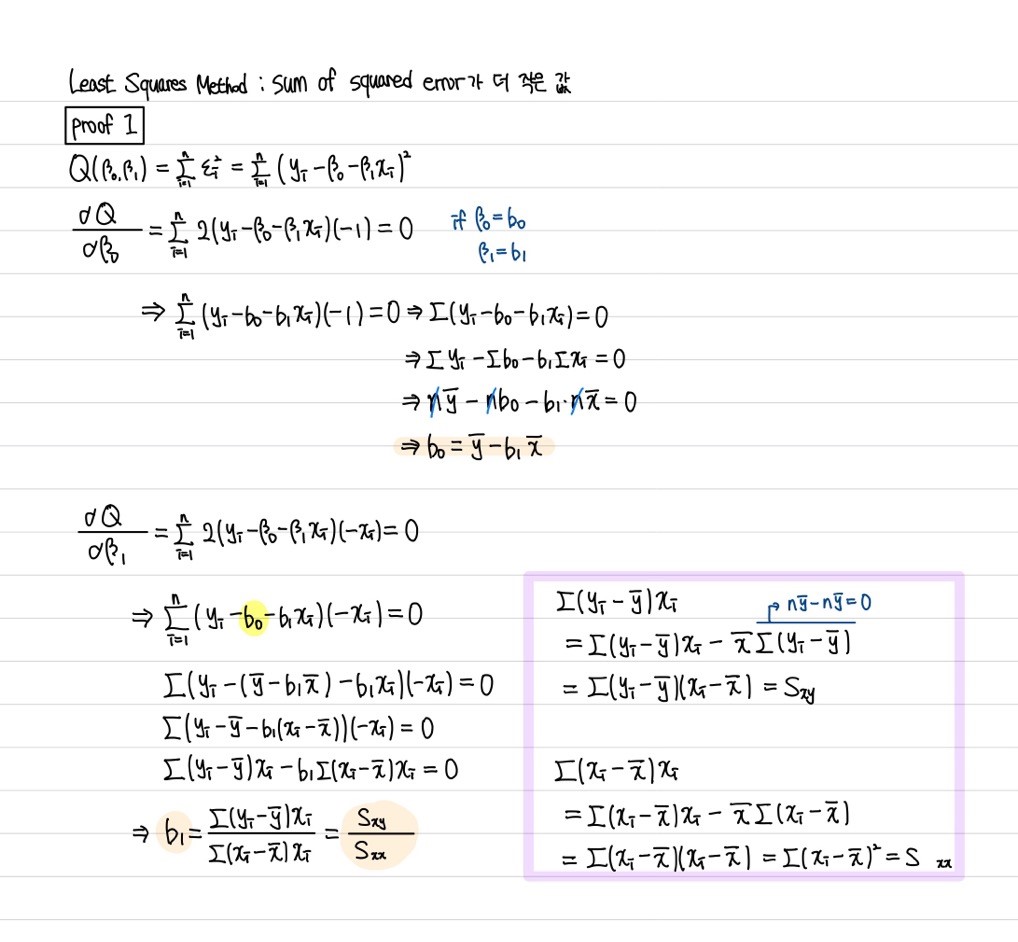 Least Squares Method : sum of squared error가 더 작은 값
proof 1
Q(β₀,β₁) = Σᵢ₌₁ⁿ εᵢ² = Σᵢ₌₁ⁿ (yᵢ-β₀-β₁xᵢ)²
dQ/dβ₀ = Σᵢ₌₁ⁿ 2(yᵢ-β₀-β₁xᵢ)(-1) = 0 if β₀=b₀
β₁=b₁
⇒ Σᵢ₌₁ⁿ (yᵢ-b₀-b₁xᵢ)(-1) = 0 ⇒ Σ(yᵢ-b₀-b₁xᵢ) = 0
⇒ Σyᵢ - Σb₀ - b₁Σxᵢ = 0
⇒ nȳ - nb₀ - b₁·nx̄ = 0
⇒ b₀ = ȳ - b₁x̄
dQ/dβ₁ = Σᵢ₌₁ⁿ 2(yᵢ-β₀-β₁xᵢ)(-xᵢ) = 0
⇒ Σᵢ₌₁ⁿ (yᵢ-b₀-b₁xᵢ)(-xᵢ) = 0
Σ(yᵢ-(ȳ-b₁x̄)-b₁xᵢ)(-xᵢ) = 0
Σ(yᵢ-ȳ-b₁(xᵢ-x̄))(-xᵢ) = 0
Σ(yᵢ-ȳ)xᵢ - b₁Σ(xᵢ-x̄)xᵢ = 0
⇒ b₁ = Σ(yᵢ-ȳ)xᵢ / Σ(xᵢ-x̄)xᵢ = Sxy / Sxx
Σ(yᵢ-ȳ)xᵢ
nȳ-nȳ=0
= Σ(yᵢ-ȳ)xᵢ - x̄Σ(yᵢ-ȳ)
= Σ(yᵢ-ȳ)(xᵢ-x̄) = Sxy
Σ(xᵢ-x̄)xᵢ
= Σ(xᵢ-x̄)xᵢ - x̄Σ(xᵢ-x̄)
= Σ(xᵢ-x̄)(xᵢ-x̄) = Σ(xᵢ-x̄)² = S xx